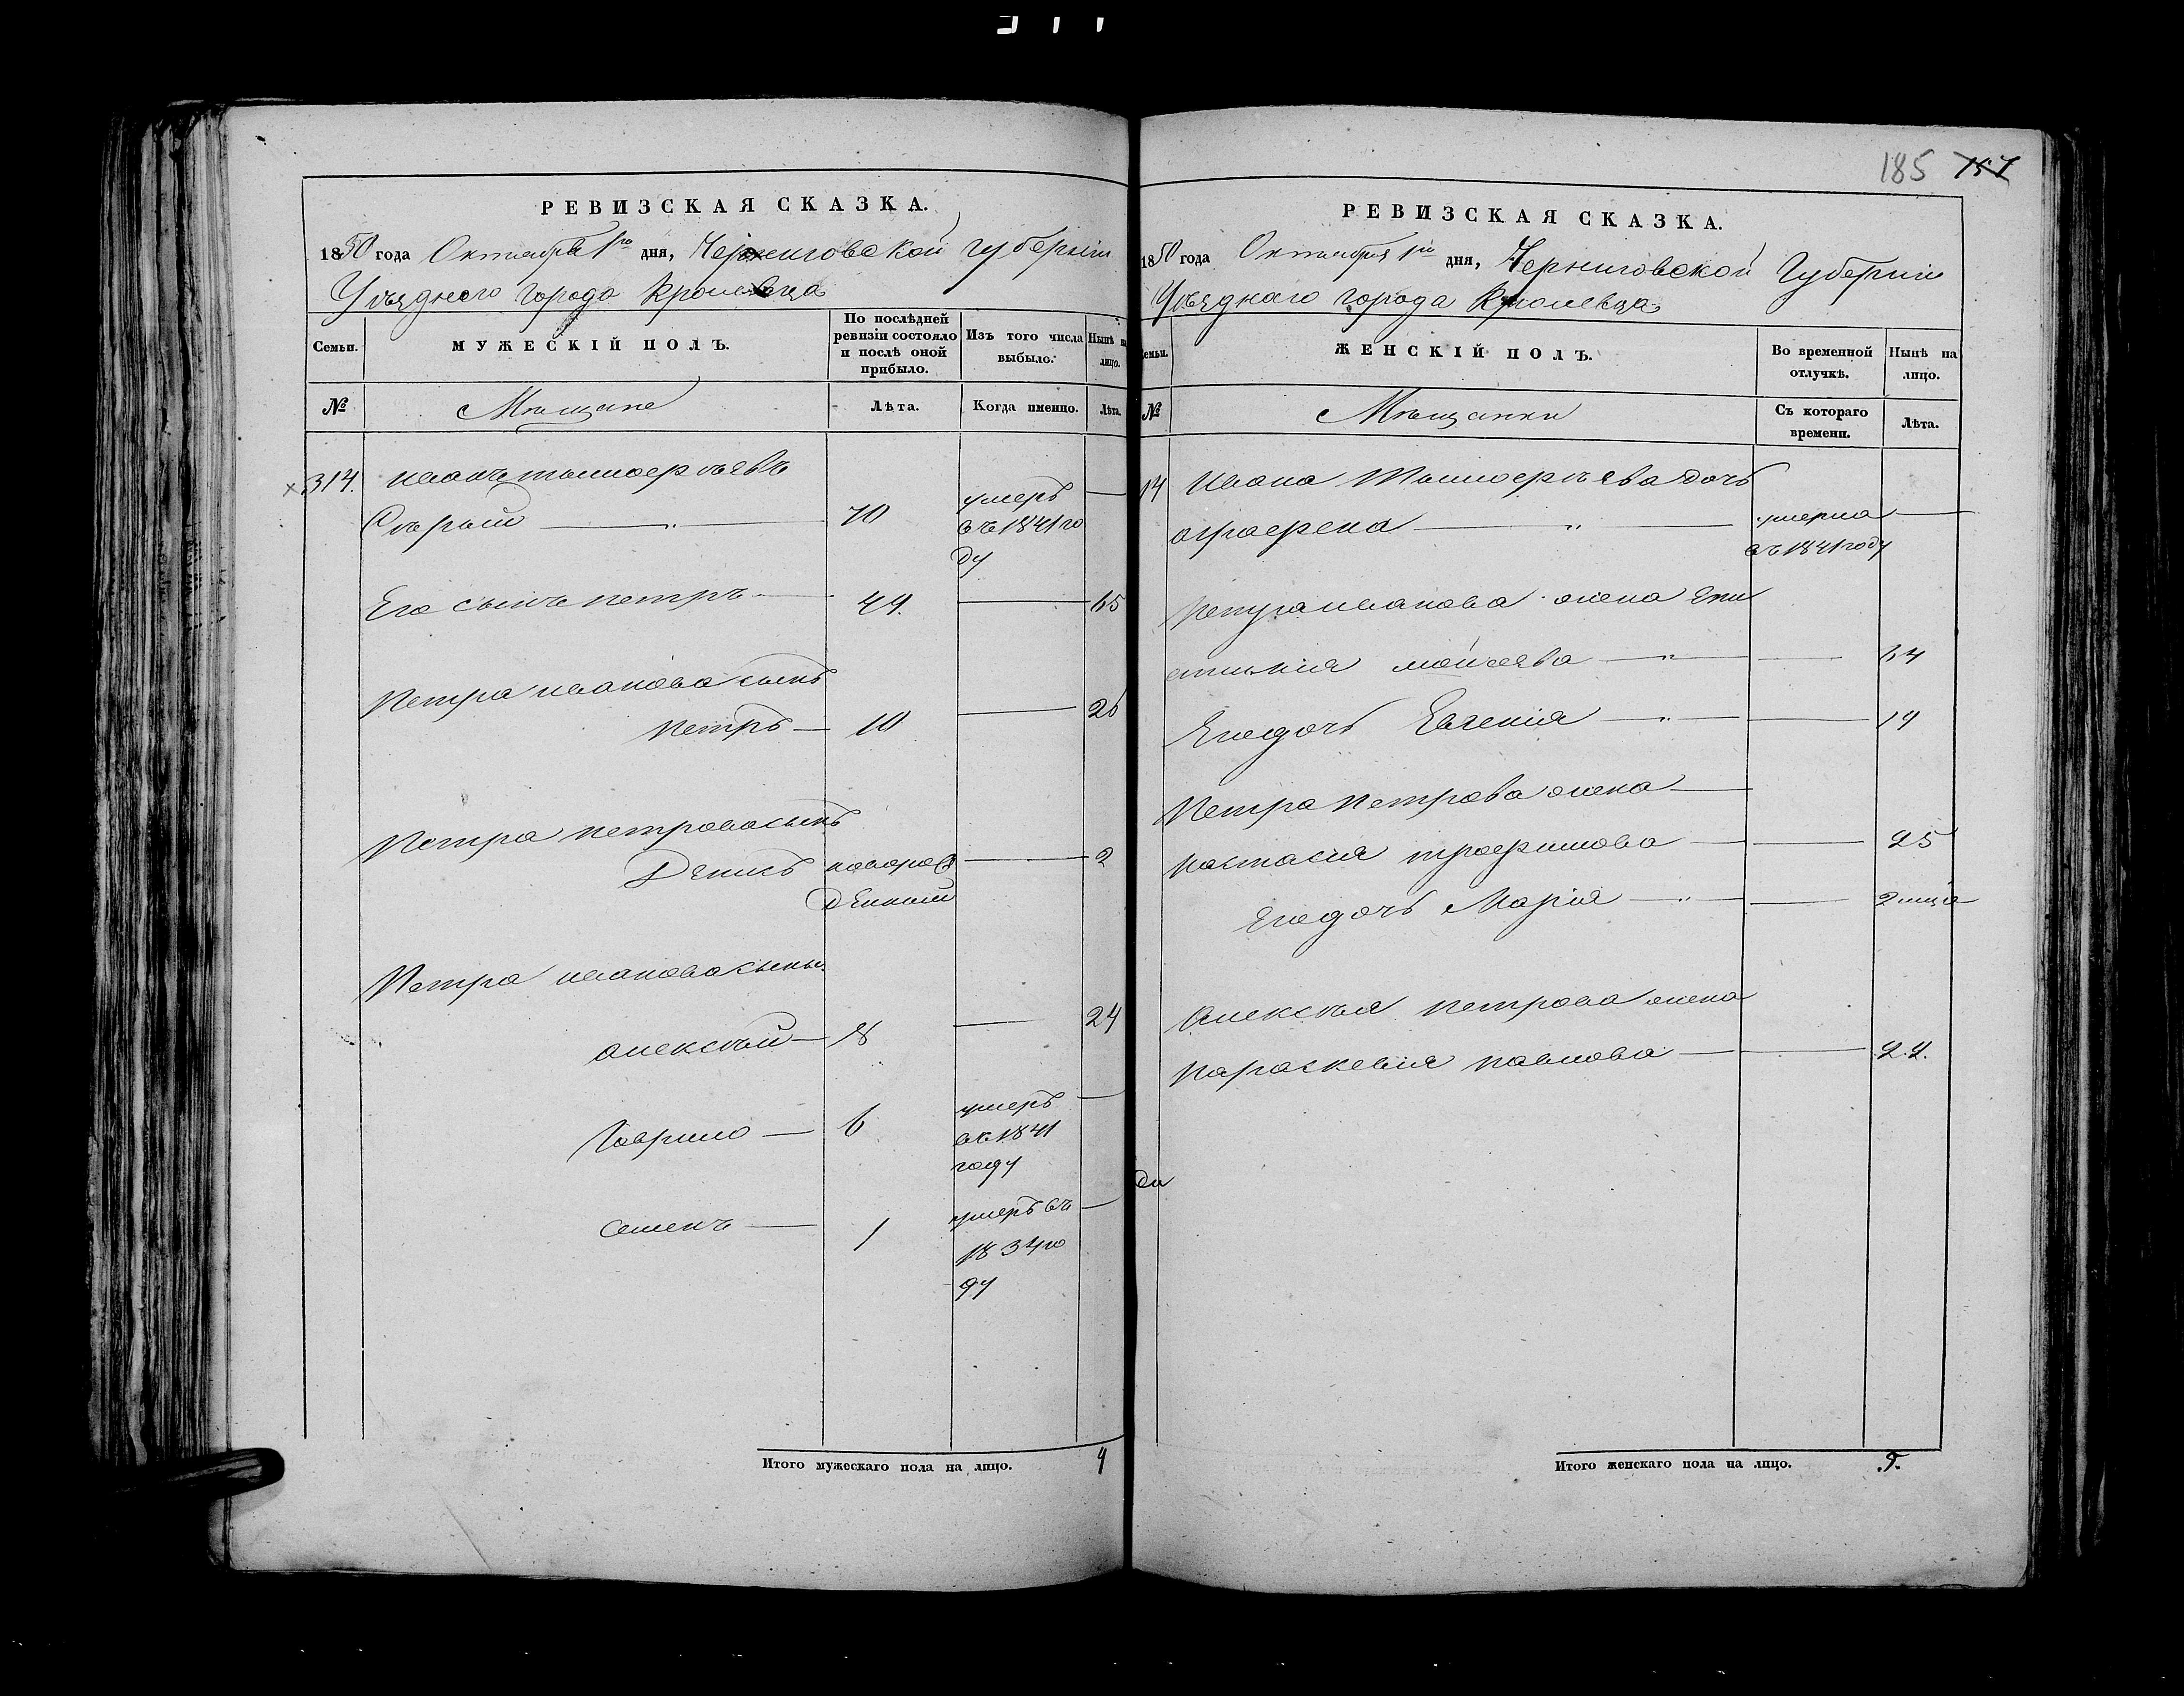 185 157
РЕВИЗСКАЯ СКАЗКА.
1850 года Октября 1го дня, Черниговской губерніи
Уѣзднаго города Кролевца
Семьи. МУЖЕСКІЙ ПОЛЪ. По послѣдней ревизіи состояло и послѣ оной прибыло. Изъ того числа выбыло. Нынѣ на лицо.
№ Мѣщане Лѣта. Когда именно. Лѣта.
314. Иванъ
Сѣрый 70 умеръ въ 1841 году
Его сынъ Петръ 49. 65
Петра Иванова сынъ
Петръ 10 26
Петра Петрова сынъ
Денисъ новорожденный 2
Петра Иванова сыны
Алексѣй 8 24
Гаврило 6 умеръ въ 1841 году
Семенъ 1 умеръ въ 1834 году
Итого мужескаго пола на лицо. 4
РЕВИЗСКАЯ СКАЗКА.
1850 года Октября 1го дня, Черниговской Губерніи
Уѣзднаго города Кролевца
Семьи. ЖЕНСКІЙ ПОЛЪ. Во временной отлучкѣ. Нынѣ на лицо.
№ Мѣщанки Съ котораго времени. Лѣта.
14 Ивана дочь
Аграфена умерла въ 1841 году
Петра Иванова жена
Мойсеева 64
Его дочь Евгенія 19
Петра Петрова жена
Настасія Трофимова 25
Его дочь Марія
Алексѣя Петрова жена
Параскевія Павлова 22.
Итого женскаго пола на лицо. 5.